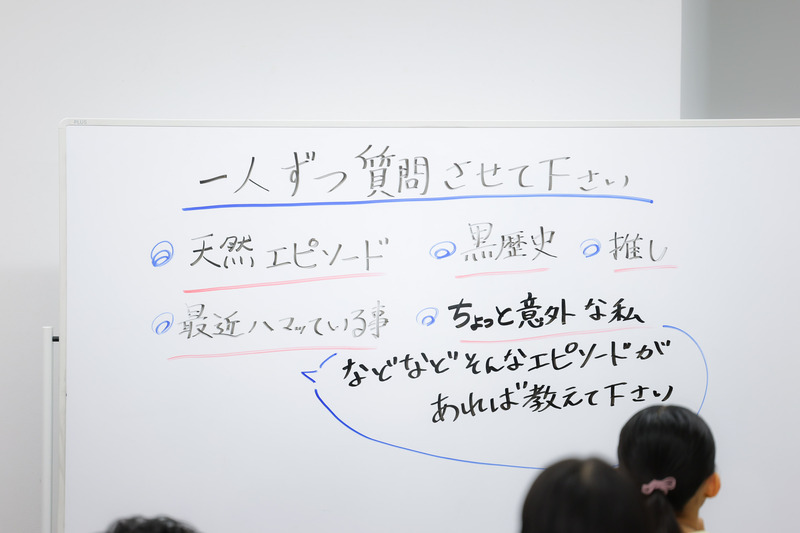 PLUS
一人ずつ質問させて下さい
◎天然エピソード ◎黒歴史 ◎推し
◎最近ハマッている事 ◎ちょっと意外な私
などなどそんなエピソードが
あれば教えて下さい